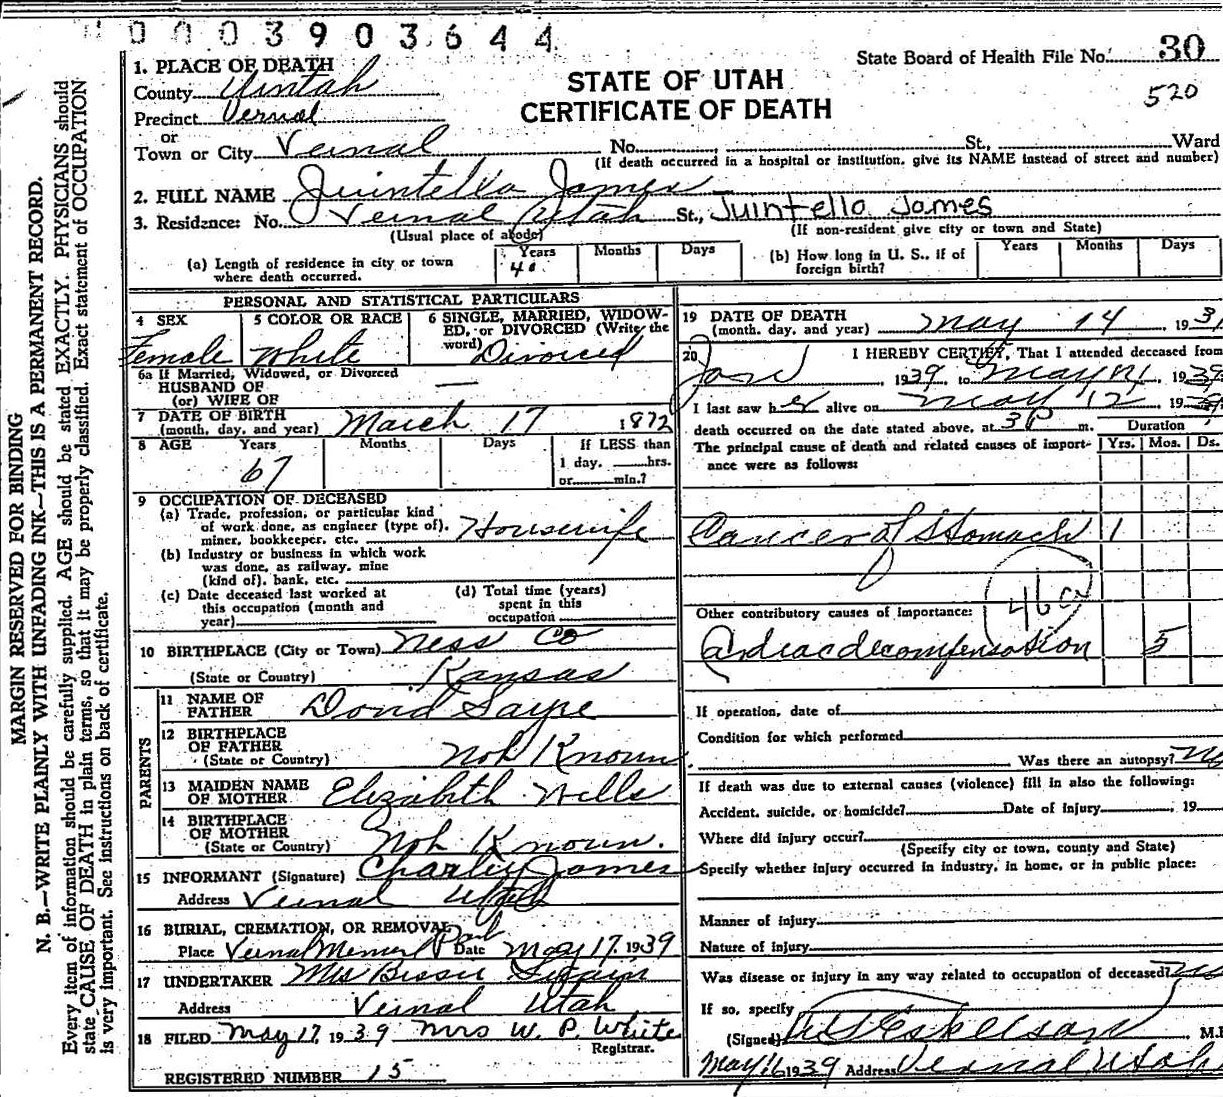 0003903644
State Board of Health File No. 30
520
STATE OF UTAH
CERTIFICATE OF DEATH
1. PLACE OF DEATH
County Uintah
Precinct Vernal
or
Town or City Vernal No. St., Ward
(If death occurred in a hospital or institution, give its NAME instead of street and number)
2. FULL NAME Juintella James
3. Residence: No. Vernal Utah St., Juintello James
(Usual place of abode) (If non-resident give city or town and State)
(a) Length of residence in city or town where death occurred. Years 40 Months Days
(b) How long in U. S., if of foreign birth? Years Months Days
PERSONAL AND STATISTICAL PARTICULARS
4 SEX Female
5 COLOR OR RACE White
6 SINGLE, MARRIED, WIDOWED, or DIVORCED (Write the word) Divorced
6a If Married, Widowed, or Divorced
HUSBAND OF
(or) WIFE OF —
7 DATE OF BIRTH
(month, day, and year) March 17 1872
8 AGE Years 67 Months Days If LESS than
1 day, hrs.
or min.?
9 OCCUPATION OF DECEASED
(a) Trade, profession, or particular kind
of work done, as engineer (type of),
miner, bookkeeper, etc. Housewife
(b) Industry or business in which work
was done, as railway, mine
(kind of), bank, etc.
(c) Date deceased last worked at
this occupation (month and
year)
(d) Total time (years)
spent in this
occupation
10 BIRTHPLACE (City or Town) Ness Co
(State or Country) Kansas
PARENTS
11 NAME OF
FATHER David Sayre
12 BIRTHPLACE
OF FATHER
(State or Country) Not Known
13 MAIDEN NAME
OF MOTHER Elizabeth Wells
14 BIRTHPLACE
OF MOTHER
(State or Country) Not Known.
15 INFORMANT (Signature) Charley James
Address Vernal Utah
16 BURIAL, CREMATION, OR REMOVAL
Place Vernal Memorial Park Date May 17, 1939
17 UNDERTAKER Mrs
Address Vernal Utah
18 FILED May 17, 1939 Mrs W. P. White
Registrar.
REGISTERED NUMBER 15
19 DATE OF DEATH
(month, day, and year) May 14, 193
20 I HEREBY CERTIFY, That I attended deceased from
Jan 1939 to May 14, 1939
I last saw her alive on May 12 1939
death occurred on the date stated above, at 3P m.
The principal cause of death and related causes of importance were as follows:
Duration
Yrs. Mos. Ds.
Cancer of Stomach 1
46a
Other contributory causes of importance:
Cardiac decompensation 5
If operation, date of
Condition for which performed
Was there an autopsy? No
If death was due to external causes (violence) fill in also the following:
Accident, suicide, or homicide? Date of Injury , 19
Where did injury occur?
(Specify city or town, county and State)
Specify whether injury occurred in industry, in home, or in public place:
Manner of injury
Nature of injury
Was disease or injury in any way related to occupation of deceased?
If so, specify
(Signed) Eskelson M.
May 16 1939 Address Vernal Utah
MARGIN RESERVED FOR BINDING
N. B.—WRITE PLAINLY WITH UNFADING INK—THIS IS A PERMANENT RECORD.
Every item of information should be carefully supplied. AGE should be stated EXACTLY. PHYSICIANS should
state CAUSE OF DEATH in plain terms, so that it may be properly classified. Exact statement of OCCUPATION
is very important. See instructions on back of certificate.